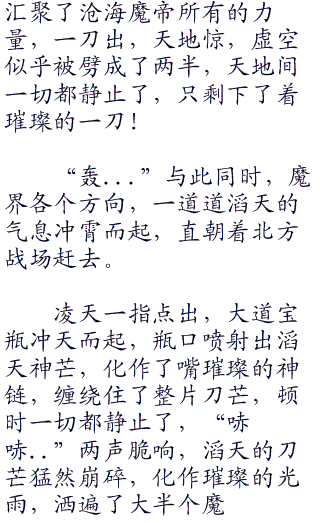 汇聚了沧海魔帝所有的力
量，一刀出，天地惊，虚空
似乎被劈成了两半，天地间
一切都静止了，只剩下了着
璀璨的一刀！
“轰...”与此同时，魔
界各个方向，一道道滔天的
气息冲霄而起，直朝着北方
战场赶去。
凌天一指点出，大道宝
瓶冲天而起，瓶口喷射出滔
天神芒，化作了嘴璀璨的神
链，缠绕住了整片刀芒，顿
时一切都静止了，“哧
哧..”两声脆响，滔天的刀
芒猛然崩碎，化作璀璨的光
雨，洒遍了大半个魔